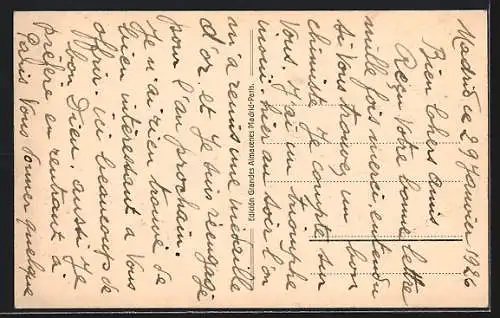 Madrid ce 29 Janvier 1926
Bien Chers Amis
Reçu votre bonne lettre
mille fois merci entendu
si vous trouvez un bon
chimiste Je compte sur
Vous. J'ai un triomphe
inoui hier au soir l'on
m'a remis une médaille
d'or et Je suis réengagé
pour l'an prochain.
Je n'ai rien trouvé de
bien intéressant à Vous
offrir ici beaucoup de
bon Dieu aussi Je
préfère en rentrant à
Paris Vous donner quelque
Edición Grandes Almacenes Madrid-Paris.